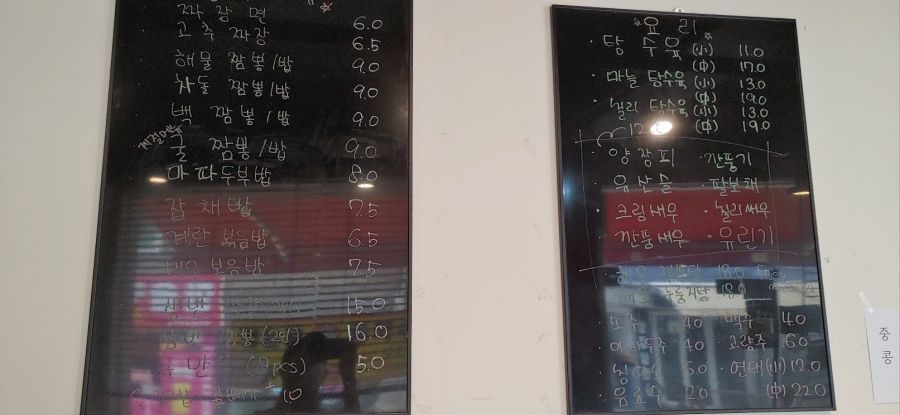 짜장면 6.0
고추짜장 6.5
해물 짬뽕/밥 9.0
차돌 짬뽕/밥 9.0
백 짬뽕/밥 9.0
굴 짬뽕/밥 9.0
마파두부밥 8.0
잡채밥 7.5
계란 볶음밥 6.5
볶음밥 7.5
15.0
(2인) 16.0
(3pcs) 5.0
요리
· 탕수육 (小) 11.0
(中) 17.0
· 마늘 탕수육 (小) 13.0
(中) 19.0
· 칠리 탕수육 (小) 13.0
(中) 19.0
· 양장피 · 깐풍기
· 유산슬 · 팔보채
· 크림새우 · 칠리새우
· 깐풍새우 · 유린기
누룽지탕 18.0
· 소주 4.0 · 맥주 4.0
4.0 · 고량주 6.0
6.0 · 연태(小) 12.0
· 음료수 2.0 (中) 22.0
중
콩